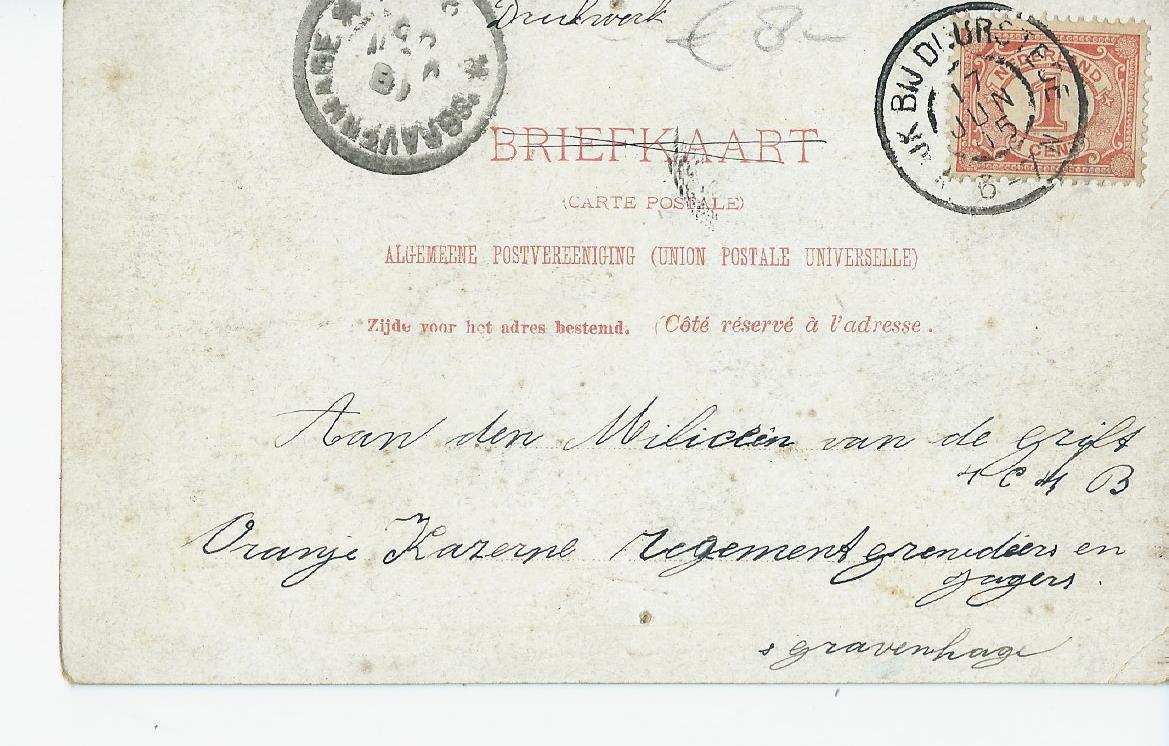 Drukwerk € 8-
'SGRAVENHAGE
WIJK BIJ DUURSTEDE
17 JUN 05
NEDERLAND
1
CENT
BRIEFKAART
(CARTE POSTALE)
ALGEMEENE POSTVEREENIGING (UNION POSTALE UNIVERSELLE)
Zijde voor het adres bestemd. (Côté réservé à l'adresse.
Aan den Milicien van de Grift
4 C 4 B
Oranje Kazerne regement grenediers en
jagers.
s gravenhage